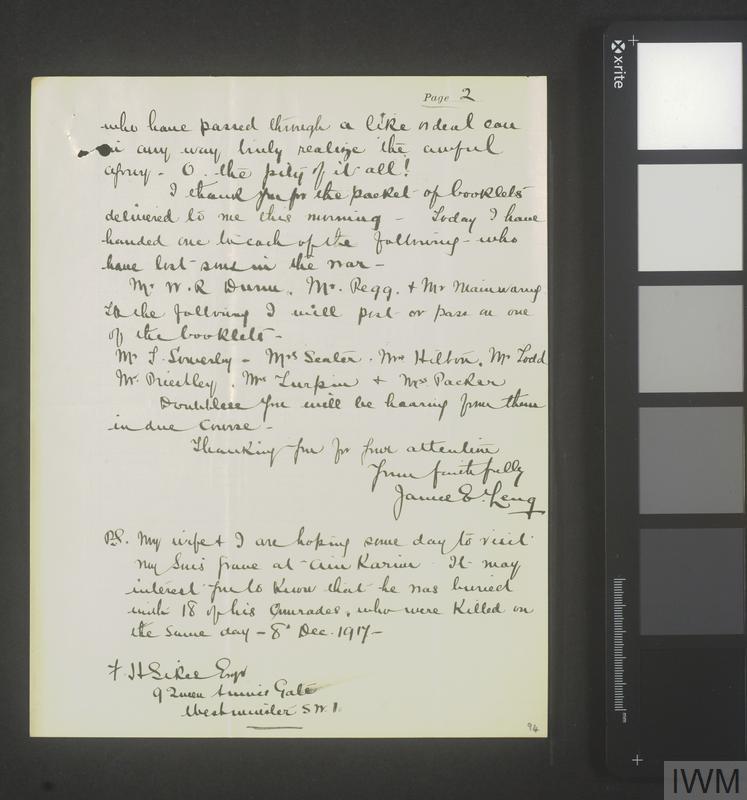 Page 2
who have passed through a like ordeal can
in any way truly realize the awful
agony - O. the pity of it all!
I thank you for the packet of booklets
delivered to me this morning - Today I have
handed one to each of the following - who
have lost sons in the war -
Mr W. R Dunn, Mr. Pegg, & Mr Mainwaring
To the following I will post or pass on one
of the booklets -
Mr Sowerby - Mrs Seater. Mrs Hilton, Mr Todd
Mr. Priestley, Mrs Turpin & Mrs Packer
Doubtless you will be hearing from them
in due course -
Thanking you for your attention
Yours faithfully
James E. Leng
P.S. My wife & I are hoping some day to visit
my Son's grave at Ain Karim. It may
interest you to know that he was buried
with 18 of his Comrades, who were killed on
the same day - 8th Dec. 1917 -
Esqr
9 Queen Anne's Gate
Westminster S.W.1.
94
x-rite
mm
IWM